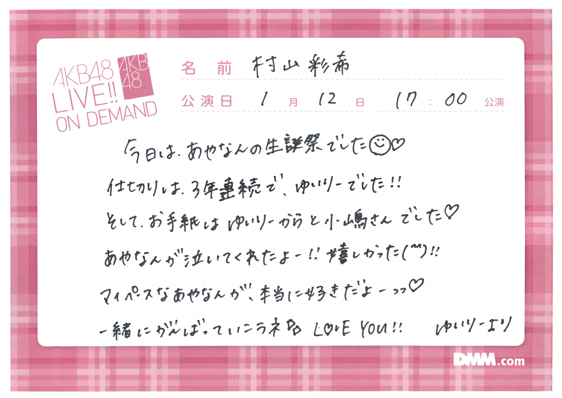 AKB48
LIVE!!
ON DEMAND
AKB
48
名前 村山彩希
公演日 1月12日 17:00公演
今日は、あやなんの生誕祭でした☺♡
仕切りは、3年連続で、ゆいりーでした!!
そして、お手紙はゆいりーからと小嶋さんでした♡
あやなんが泣いてくれたよー!!嬉しかった(^^)!!
マイペースなあやなんが、本当に好きだよーっっ♡
一緒にがんばっていこうネ LOVE YOU!! ゆいりーより
DMM.com